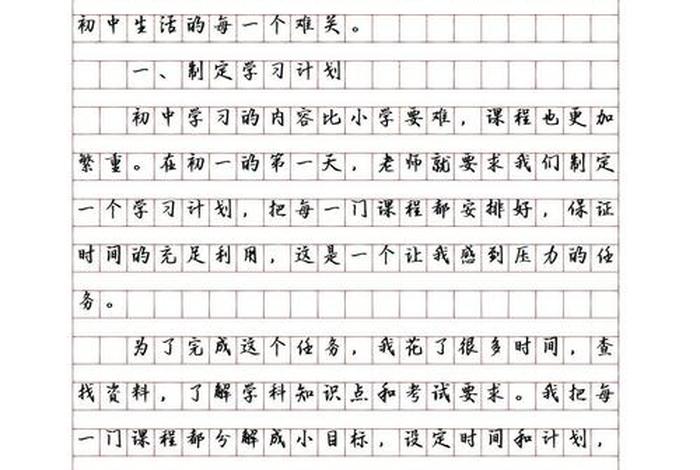 初中生活的每一个难关。
一、制定学习计划
初中学习的内容比小学要难，课程也更加
繁重。在初一的第一天，老师就要求我们制定
一个学习计划，把每一门课程都安排好，保证
时间的充足利用，这是一个让我感到压力的任
务。
为了完成这个任务，我花了很多时间，查
找资料，了解学科知识点和考试要求。我把每
一门课程都分解成小目标，设定时间和计划，